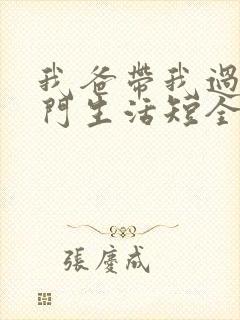 我爸帶我過
門生活短全
張慶成